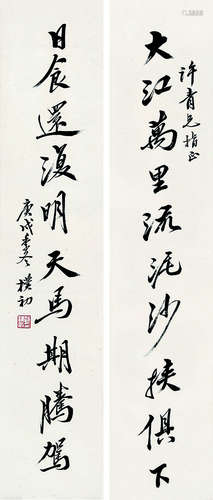 许青兄指正
大江萬里流泥沙挾俱下
日食還復明天馬期騰駕
庚戌春冬 樸初